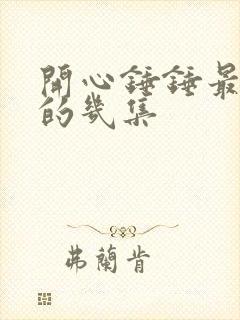 開心錘錘最
的幾集
弗蘭肯